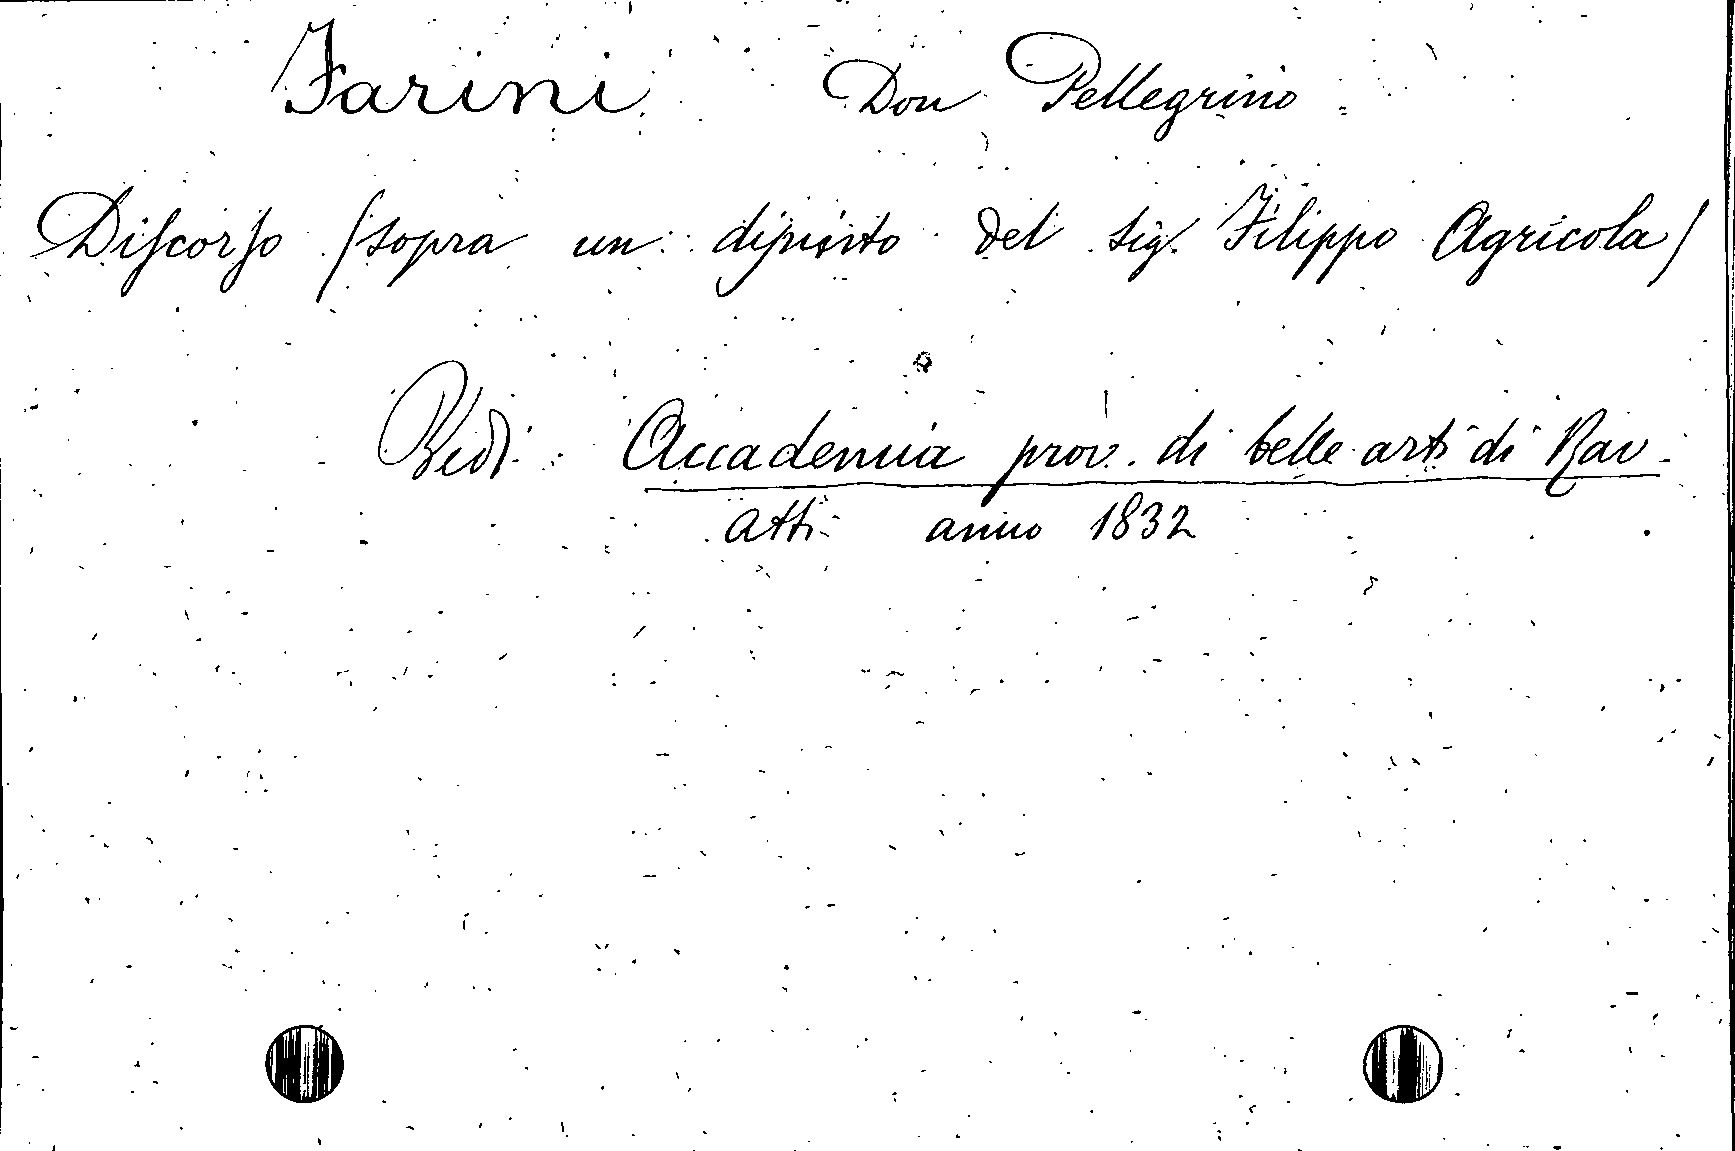 Farini Don Pellegrino
Discorso (sopra un dipinto del sig. Filippo Agricola)
Vedi: Accademia prov. di belle arti di Rav.
Atti anno 1832